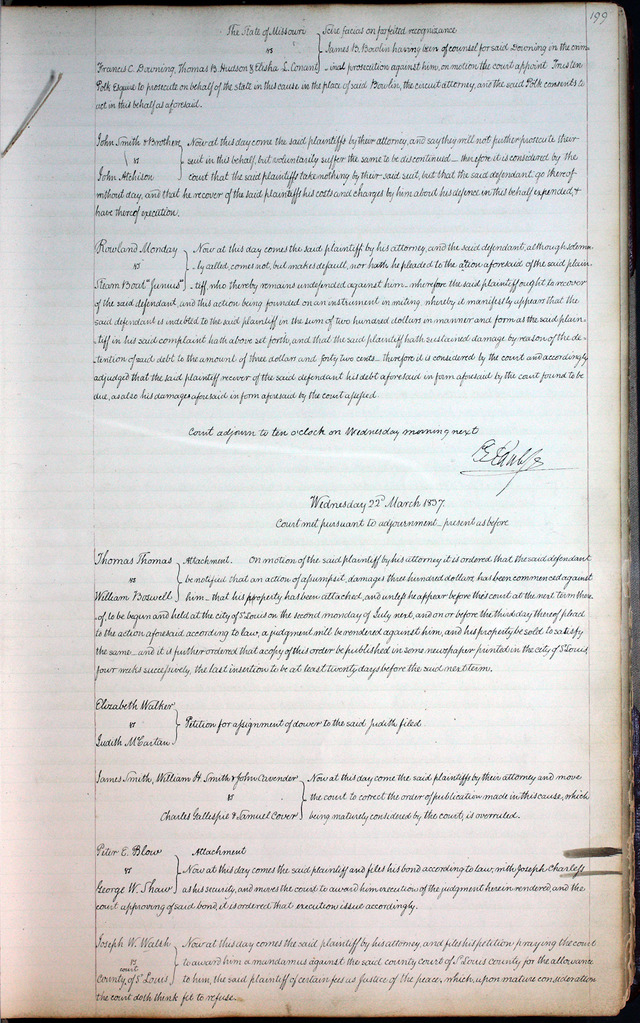 199
The State of Missouri } Scire facias on forfeited recognizance
vs } James B. Bowlin having been of counsel for said Downing in the crim-
Francis C. Downing, Thomas B. Hudson & Elisha L. Conant } -inal prosecution against him, on motion the court appoint Trusten
Polk Esquire to prosecute on behalf of the state in this cause in the place of said Bowlin, the circuit attorney, and the said Polk consents to
act in this behalf as aforesaid.
John Smith & Brothers } Now at this day come the said plaintiffs by their attorney, and say they will not further prosecute their
vs } suit in this behalf, but voluntarily suffer the same to be discontinued — therefore it is considered by the
John Atchison } court that the said plaintiffs take nothing by their said suit, but that the said defendant go thereof
without day, and that he recover of the said plaintiffs his costs and charges by him about his defence in this behalf expended, &
have thereof execution.
Rowland Monday } Now at this day comes the said plaintiff by his attorney, and the said defendant, although solemn-
vs } ly called, comes not, but makes default, nor hath he pleaded to the action aforesaid of the said plain-
Steam Boat "Junius" } -tiff, who thereby remains undefended against him — wherefore the said plaintiff ought to recover
of the said defendant, and this action being founded on an instrument in writing whereby it manifestly appears that the
said defendant is indebted to the said plaintiff in the sum of two hundred dollars in manner and form as the said plain-
tiff in his said complaint hath above set forth, and that the said plaintiff hath sustained damage by reason of the de-
tention of said debt to the amount of three dollars and forty two cents — therefore it is considered by the court and accordingly
adjudged that the said plaintiff recover of the said defendant his debt aforesaid in form aforesaid by the court found to be
due, as also his damages aforesaid in form aforesaid by the court assessed.
Court adjourn to ten o'clock on Wednesday morning next
Wednesday 22d March 1837.
Court met pursuant to adjournment — present as before
Thomas Thomas } Attachment. On motion of the said plaintiff by his attorney it is ordered that the said defendant
vs } be notified that an action of assumpsit, damages three hundred dollars, has been commenced against
William Boswell } him — that his property has been attached, and unless he appear before this court at the next term there-
of, to be begun and held at the city of St Louis on the second monday of July next, and on or before the third day thereof plead
to the action aforesaid according to law, a judgment will be rendered against him, and his property be sold to satisfy
the same — and it is further ordered that a copy of this order be published in some newspaper printed in the city of St Louis
four weeks successively, the last insertion to be at least twenty days before the said next term.
Elizabeth Walker }
vs } Petition for assignment of dower to the said Judith filed.
Judith McCartan }
James Smith, William H. Smith & John Cavender } Now at this day come the said plaintiffs by their attorney and move
vs } the court to correct the order of publication made in this cause, which
Charles Gallespie & Samuel Cover } being maturely considered by the court, is overruled.
Peter E. Blow } Attachment
vs } Now at this day comes the said plaintiff and files his bond according to law, with Joseph Charless
George W. Shaw } as his security, and moves the court to award him execution of the judgment herein rendered, and the
court approving of said bond, it is ordered that execution issue accordingly.
Joseph W. Walsh } Now at this day comes the said plaintiff by his attorney, and files his petition praying the court
vs } to award him a mandamus against the said county court of St Louis county for the allowance
County court of St Louis } to him, the said plaintiff of certain fees as Justice of the peace, which, upon mature consideration
the court doth think fit to refuse.